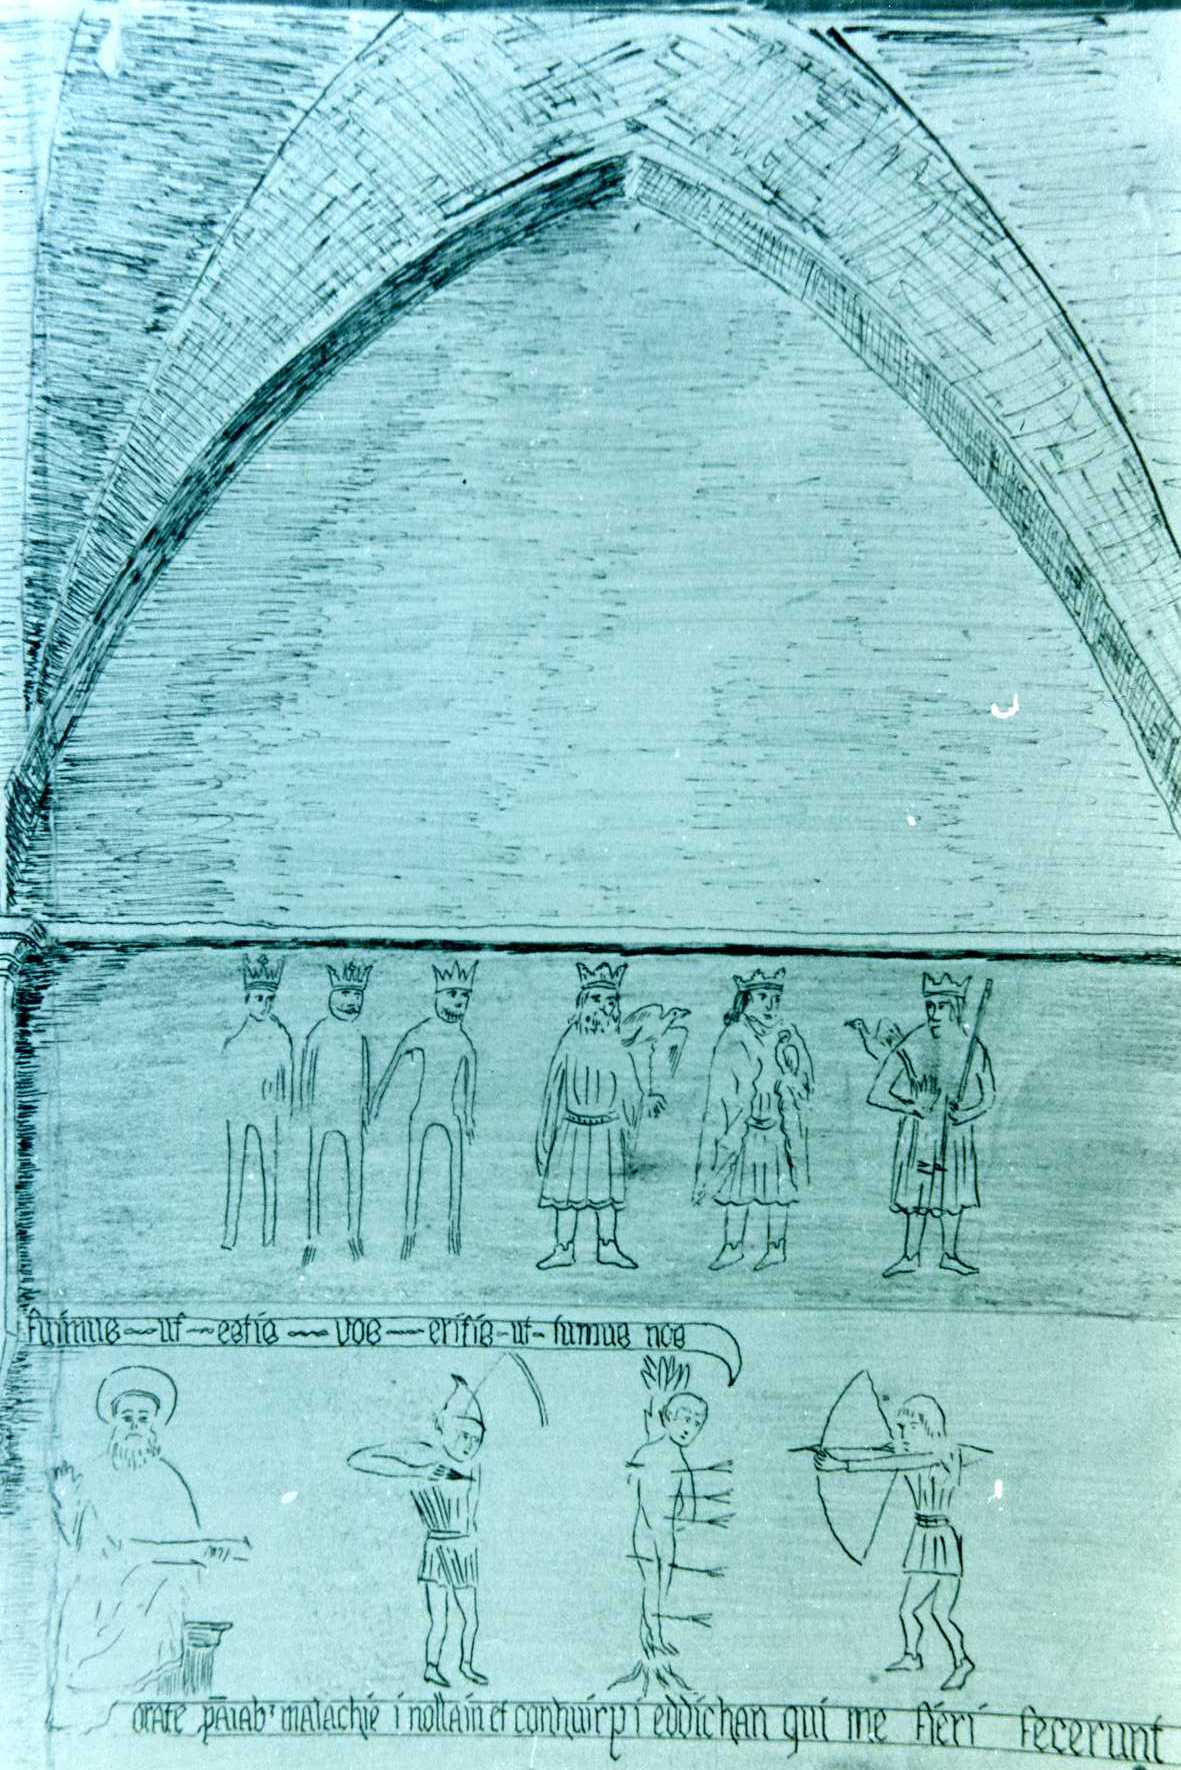 fuimus ut estis vos eritis ut sumus nos
orate p̄ aīab' malachie i nollain et conhuirp i eddichan qui me fieri fecerunt